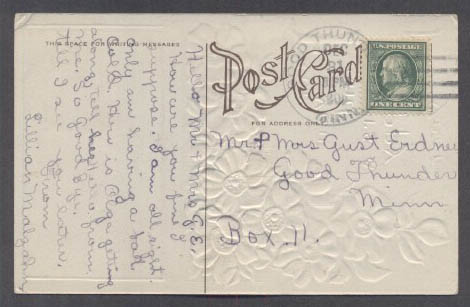 THIS SPACE FOR WRITING MESSAGES
Post Card
FOR ADDRESS ONLY
GOOD THUN
DEC
MINN
U.S. POSTAGE
ONE CENT
Mr & Mrs Gust Erdne
Good Thunder
Minn
Box 11.
Hello Mr & Mrs G. E.
How are you, fine I
suppose. I am all right.
only am having a bad
cold. How is Olga getting
along, tell her hello from
me. So Good Bye.
till I see you later.
from
Lillian